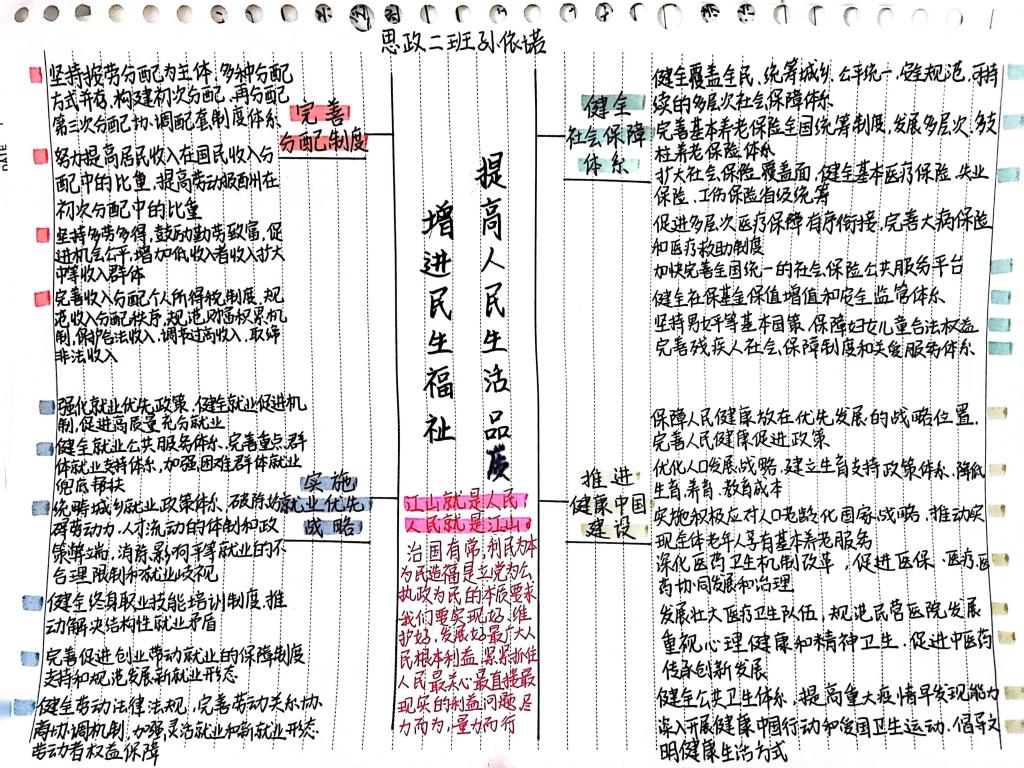 思政二班孙依诺
坚持按劳分配为主体,多种分配
方式并存,构建初次分配、再分配
第三次分配协调配套制度体系
努力提高居民收入在国民收入分
配中的比重,提高劳动报酬州在
初次分配中的比重
坚持多劳多得,鼓励勤劳致富,促
进机会公平,增加低收入者收入扩大
中等收入群体
完善收入分配个人所得税制度,规
范收入分配秩序,规范财富积累机
制,保护合法收入,调节过高收入,取缔
非法收入
完善
分配制度
强化就业优先政策,健全就业促进机
制,促进高质量充分就业
健全就业公共服务体系,完善重点群
体就业支持体系,加强困难群体就业
兜底帮扶
统畴城乡就业政策体系,破除妨
碍劳动力、人才流动的体制和政
策弊端,消除影响平等就业的不
合理限制和就业歧视
健全终身职业技能培训制度,推
动解决结构性就业矛盾
完善促进创业带动就业的保障制度
支持和规范发展新就业形态
健全劳动法律法规,完善劳动关系协
商协调机制,加强灵活就业和新就业形态
劳动者权益保障
实施
就业优先
战略
增进民生福祉
提高人民生活品质
江山就是人民
人民就是江山
治国有常,利民为本
为民造福是立党为公
执政为民的本质要求
我们要实现好、维
护好、发展好最广大人
民根本利益,紧紧抓住
人民最关心最直接最
现实的利益问题,尽
力而为,量力而行
健全
社会保障
体系
健全覆盖全民、统筹城乡、公平统一、安全规范、可持
续的多层次社会保障体系
完善基本养老保险全国统筹制度,发展多层次、多支
柱养老保险体系
扩大社会保险覆盖面,健全基本医疗保险、失业
保险、工伤保险省级统筹
促进多层次医疗保障有序衔接,完善大病保险
和医疗救助制度
加快完善全国统一的社会保险公共服务平台
健全社保基金保值增值和安全监管体系
坚持男女平等基本国策,保障妇女儿童合法权益
完善残疾人社会保障制度和关爱服务体系
推进
健康中国
建设
保障人民健康放在优先发展的战略位置,
完善人民健康促进政策
优化人口发展战略,建立生育支持政策体系,降低
生育、养育、教育成本
实施积极应对人口老龄化国家战略,推动实
现全体老年人享有基本养老服务
深化医药卫生机制改革,促进医保、医疗、医
药协同发展和治理
发展壮大医疗卫生队伍,规范民营医院发展
重视心理健康和精神卫生,促进中医药
传承创新发展
健全公共卫生体系,提高重大疫情早发现能力
深入开展健康中国行动和爱国卫生运动,倡导文
明健康生活方式